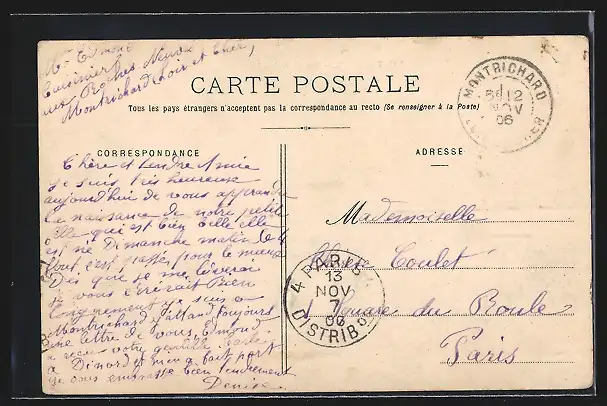 Mr Edmond
Cuisinier
aux Roches Neuves
Montrichard Loir et Cher
CARTE POSTALE
Tous les pays étrangers n'acceptent pas la correspondance au recto (Se renseigner à la Poste)
MONTRICHARD
12
NOV
06
CORRESPONDANCE
ADRESSE
Chère et tendre Amie
je suis très heureuse
aujourd'hui de vous apprendre
la naissance de notre petite
fille qui est bien belle elle
est né Dimanche matin le 4
tout c'est passé pour le mieux
Dès que je me lèverai
je vous écrirait bien
longuement je suis a
Montrichard j'attend toujours
une lettre de vous Edmond
a reçu votre gentille carte
a Dinard et m'en a fait part
je vous embrasse bien tendrement
Denise
Mademoiselle
Coulet
Square du Roule
Paris
4 PARIS
13
NOV
7
06
DISTRIBON